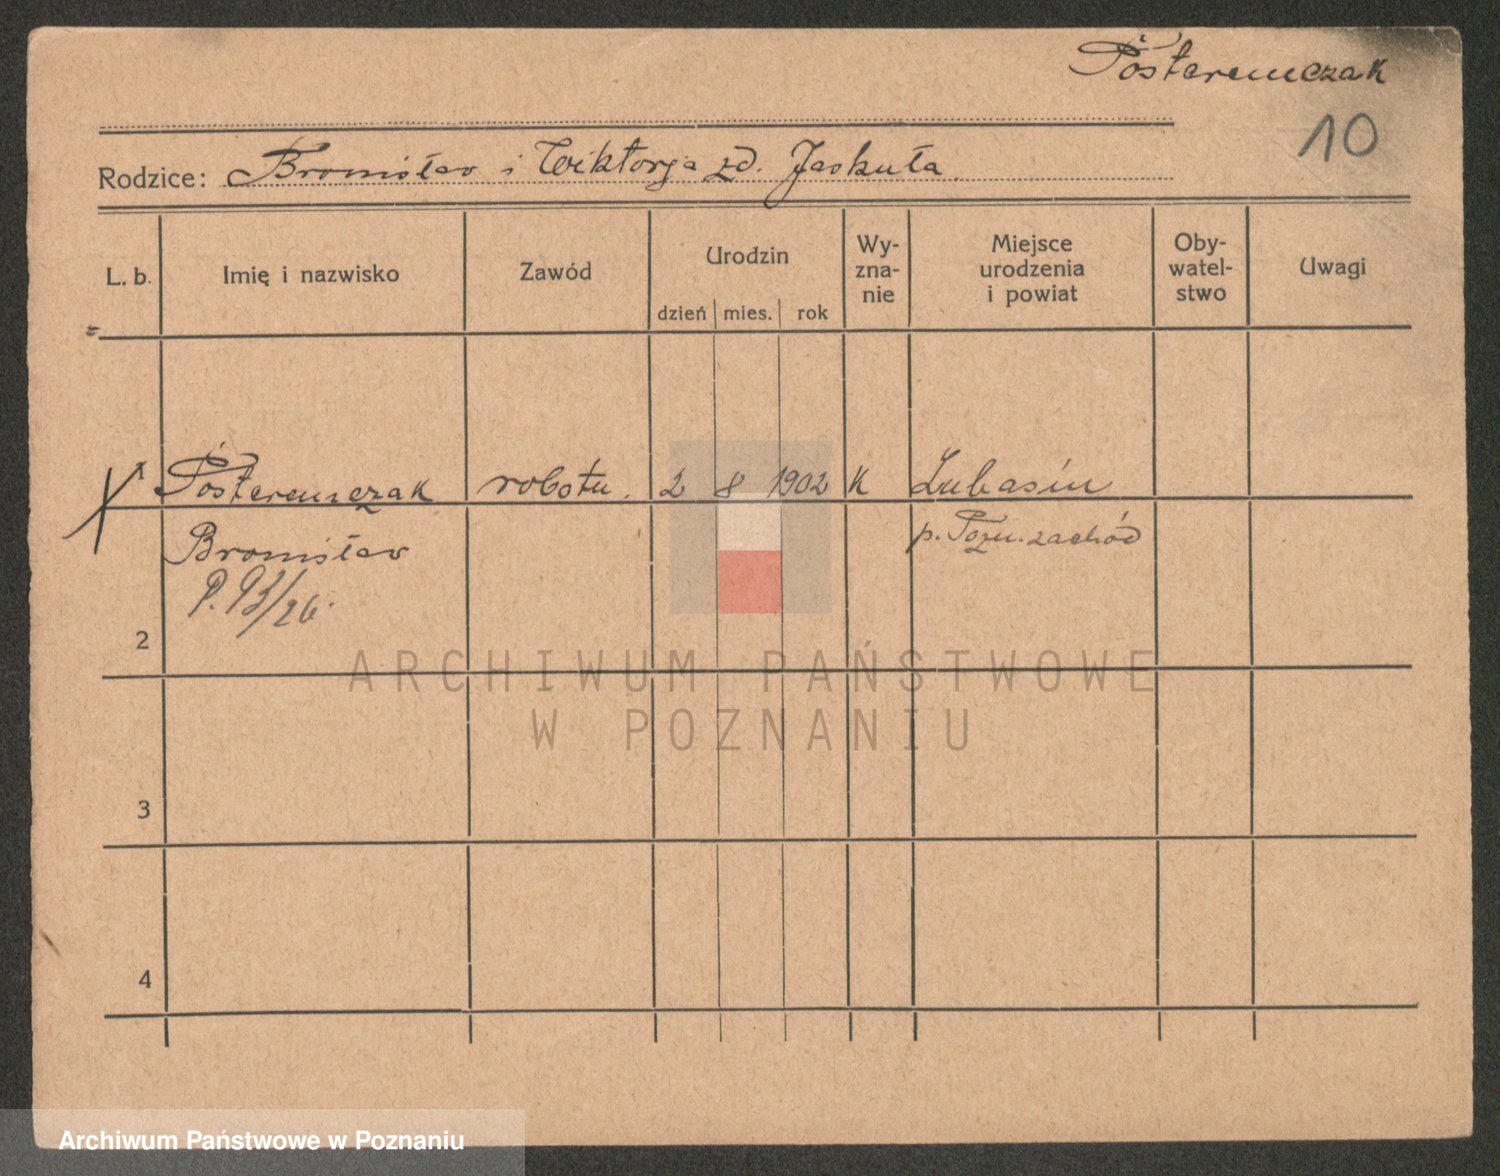 Posteremczak
10
Rodzice: Bronisław i Wiktorja zd. Jaskuła
L. b. Imię i nazwisko Zawód Urodzin Wy-zna-nie Miejsce urodzenia i powiat Oby-watel-stwo Uwagi
dzień mies. rok
1 Posteremczak robotn. 2 8 1902 K Lubasin
Bronisław p. Pozn. zachód
P. 93/26.
2
ARCHIWUM PAŃSTWOWE
W POZNANIU
3
4
Archiwum Państwowe w Poznaniu